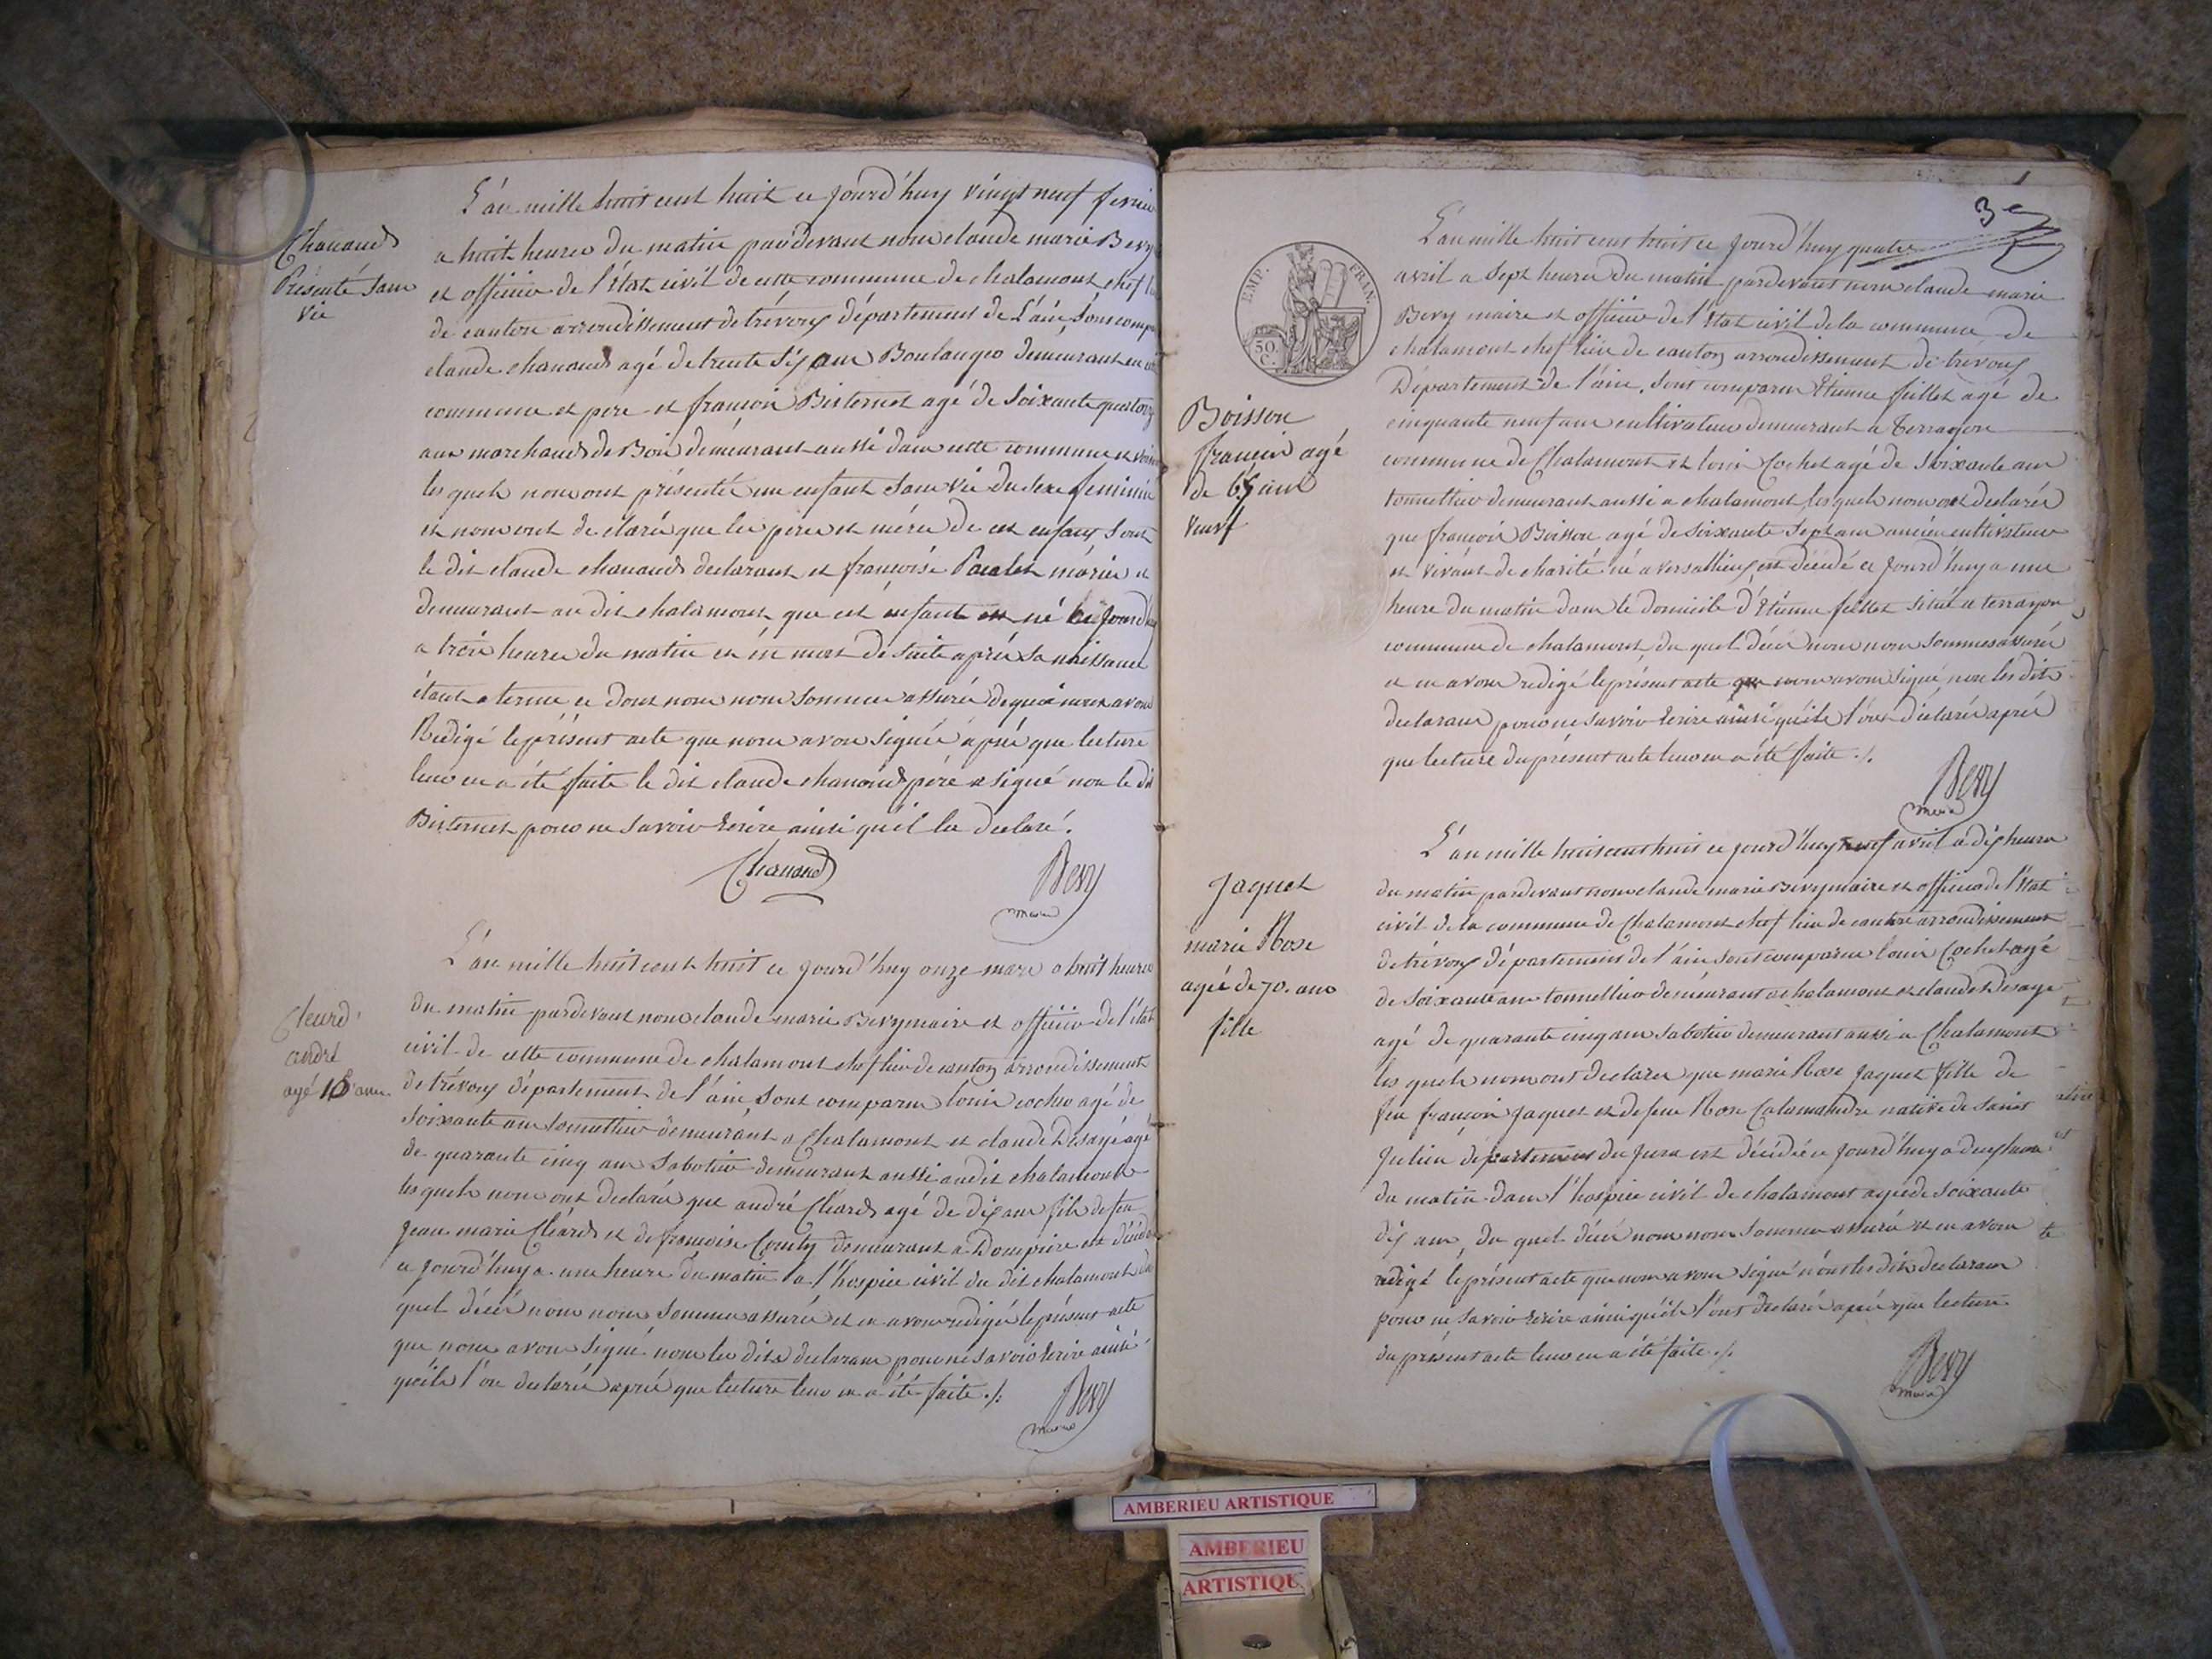 Chanaud
Présenté sans
vie
L'an mille huit cent huit ce jourd'huy vingt neuf fevrier
a huit heures du matin pardevant nous claude marie Bevy
et officier de l'état civil de cette commune de chalamont chef
de canton arrondissement de trévoux département de L'ain, sont comparu
claude chanaud agé de trente six ans Boulanger demeurant en
commune et pere et françois Bisternet agé de soixante quatorze
ans marchand de Bois demeurant aussi dans cette commune et voisin
les quels nous ont présenté un enfant sans vie du sexe feminin
et nous ont declaré que les peres et méres de cet enfant sont
le dit claude chanaud declarant et françoise mariés et
demeurant au dit chalamont que cet enfant est né ce jourd'hui
a trois heures du matin et mort de suite après sa naissance
étant a terme ce dont nous nous sommes assurés de quoi nous avons
Redigé le présent acte que nous avons signé après que lecture
leur en a été faite le dit claude chanaud père a signé non le dit
Bisternet pour ne savoir écrire ainsi qu'il l'a declaré.
Chanaud
Bevy
maire
Cleard
andré
agé 10 ans
L'an mille huit cent huit ce jourd'huy onze mars a huit heures
du matin pardevant nous claude marie Bevy maire et officier de l'état
civil de cette commune de chalamont chef lieu de canton arrondissement
de trévoux département de l'ain, sont comparu louis cochet agé de
soixante ans tonnellier demeurant a Chalamont et claude Desayé agé
de quarante cinq ans sabotier demeurant aussi au dit chalamont
les quels nous ont declaré que andré Cléard agé de dix ans fils de feu
jean marie Cléard et de françoise demeurant a Dompierre est décédé
ce jourd'huy a une heure du matin a l'hospice civil du dit chalamont du
quel décés nous nous sommes assurés et en avons redigé le présent acte
que nous avons signé non les dits declarans pour ne savoir écrire ainsi
qu'ils l'on declaré après que lecture leur en a été faite ./.
Bevy
maire
3e
EMP. FRAN.
50 C.
Boisson
françois agé
de 67 ans
veuf
L'an mille huit cent huit ce jourd'huy quatre
avril a sept heures du matin pardevant nous claude marie
Bevy maire et officier de l'état civil de la commune de
chalamont chef lieu de canton arrondissement de trévoux
Département de l'ain, sont comparu Etienne feillet agé de
cinquante neuf ans cultivateur demeurant a terrayon
commune de Chalamont et louis Cochet agé de soixante ans
tonnellier demeurant aussi a chalamont, les quels nous ont declaré
que françois Boisson agé de soixante sept ans ancien cultivateur
et vivant de charité né a versailleux est décédé ce jourd'huy a une
heure du matin dans le domicile d'Etienne feillet situé a terrayon
commune de chalamont, du quel décés nous nous sommes assurés
et en avons redigé le présent acte que nous avons signé, non les dits
declarans pour ne savoir écrire ainsi qu'ils l'ont déclaré après
que lecture du présent acte leur en a été faite ./.
Bevy
maire
Jaquet
marie Rose
agée de 70. ans
fille
L'an mille huit cent huit ce jourd'huy neuf avril a dix heures
du matin pardevant nous claude marie Bevy maire et officier de l'état
civil de la commune de Chalamont chef lieu de canton arrondissement
de trévoux département de l'ain sont comparu louis Cochet agé
de soixante ans tonnellier demeurant a chalamont et claude Desayé
agé de quarante cinq ans sabotier demeurant aussi a Chalamont
les quels nous ont declaré que marie Rose Jaquet fille de
feu françois Jaquet et de feue Rose Calamandre native de Saint
Julien département du jura est décédée ce jourd'huy a deux heures
du matin dans l'hospice civil de chalamont agée de soixante
dix ans, du quel décés nous nous sommes assurés et en avons
redigé le présent acte que nous avons signé non les dits declarans
pour ne savoir écrire ainsi qu'ils l'ont declaré après que lecture
du présent acte leur en a été faite ./.
Bevy
maire
AMBERIEU ARTISTIQUE
AMBERIEU
ARTISTIQUE